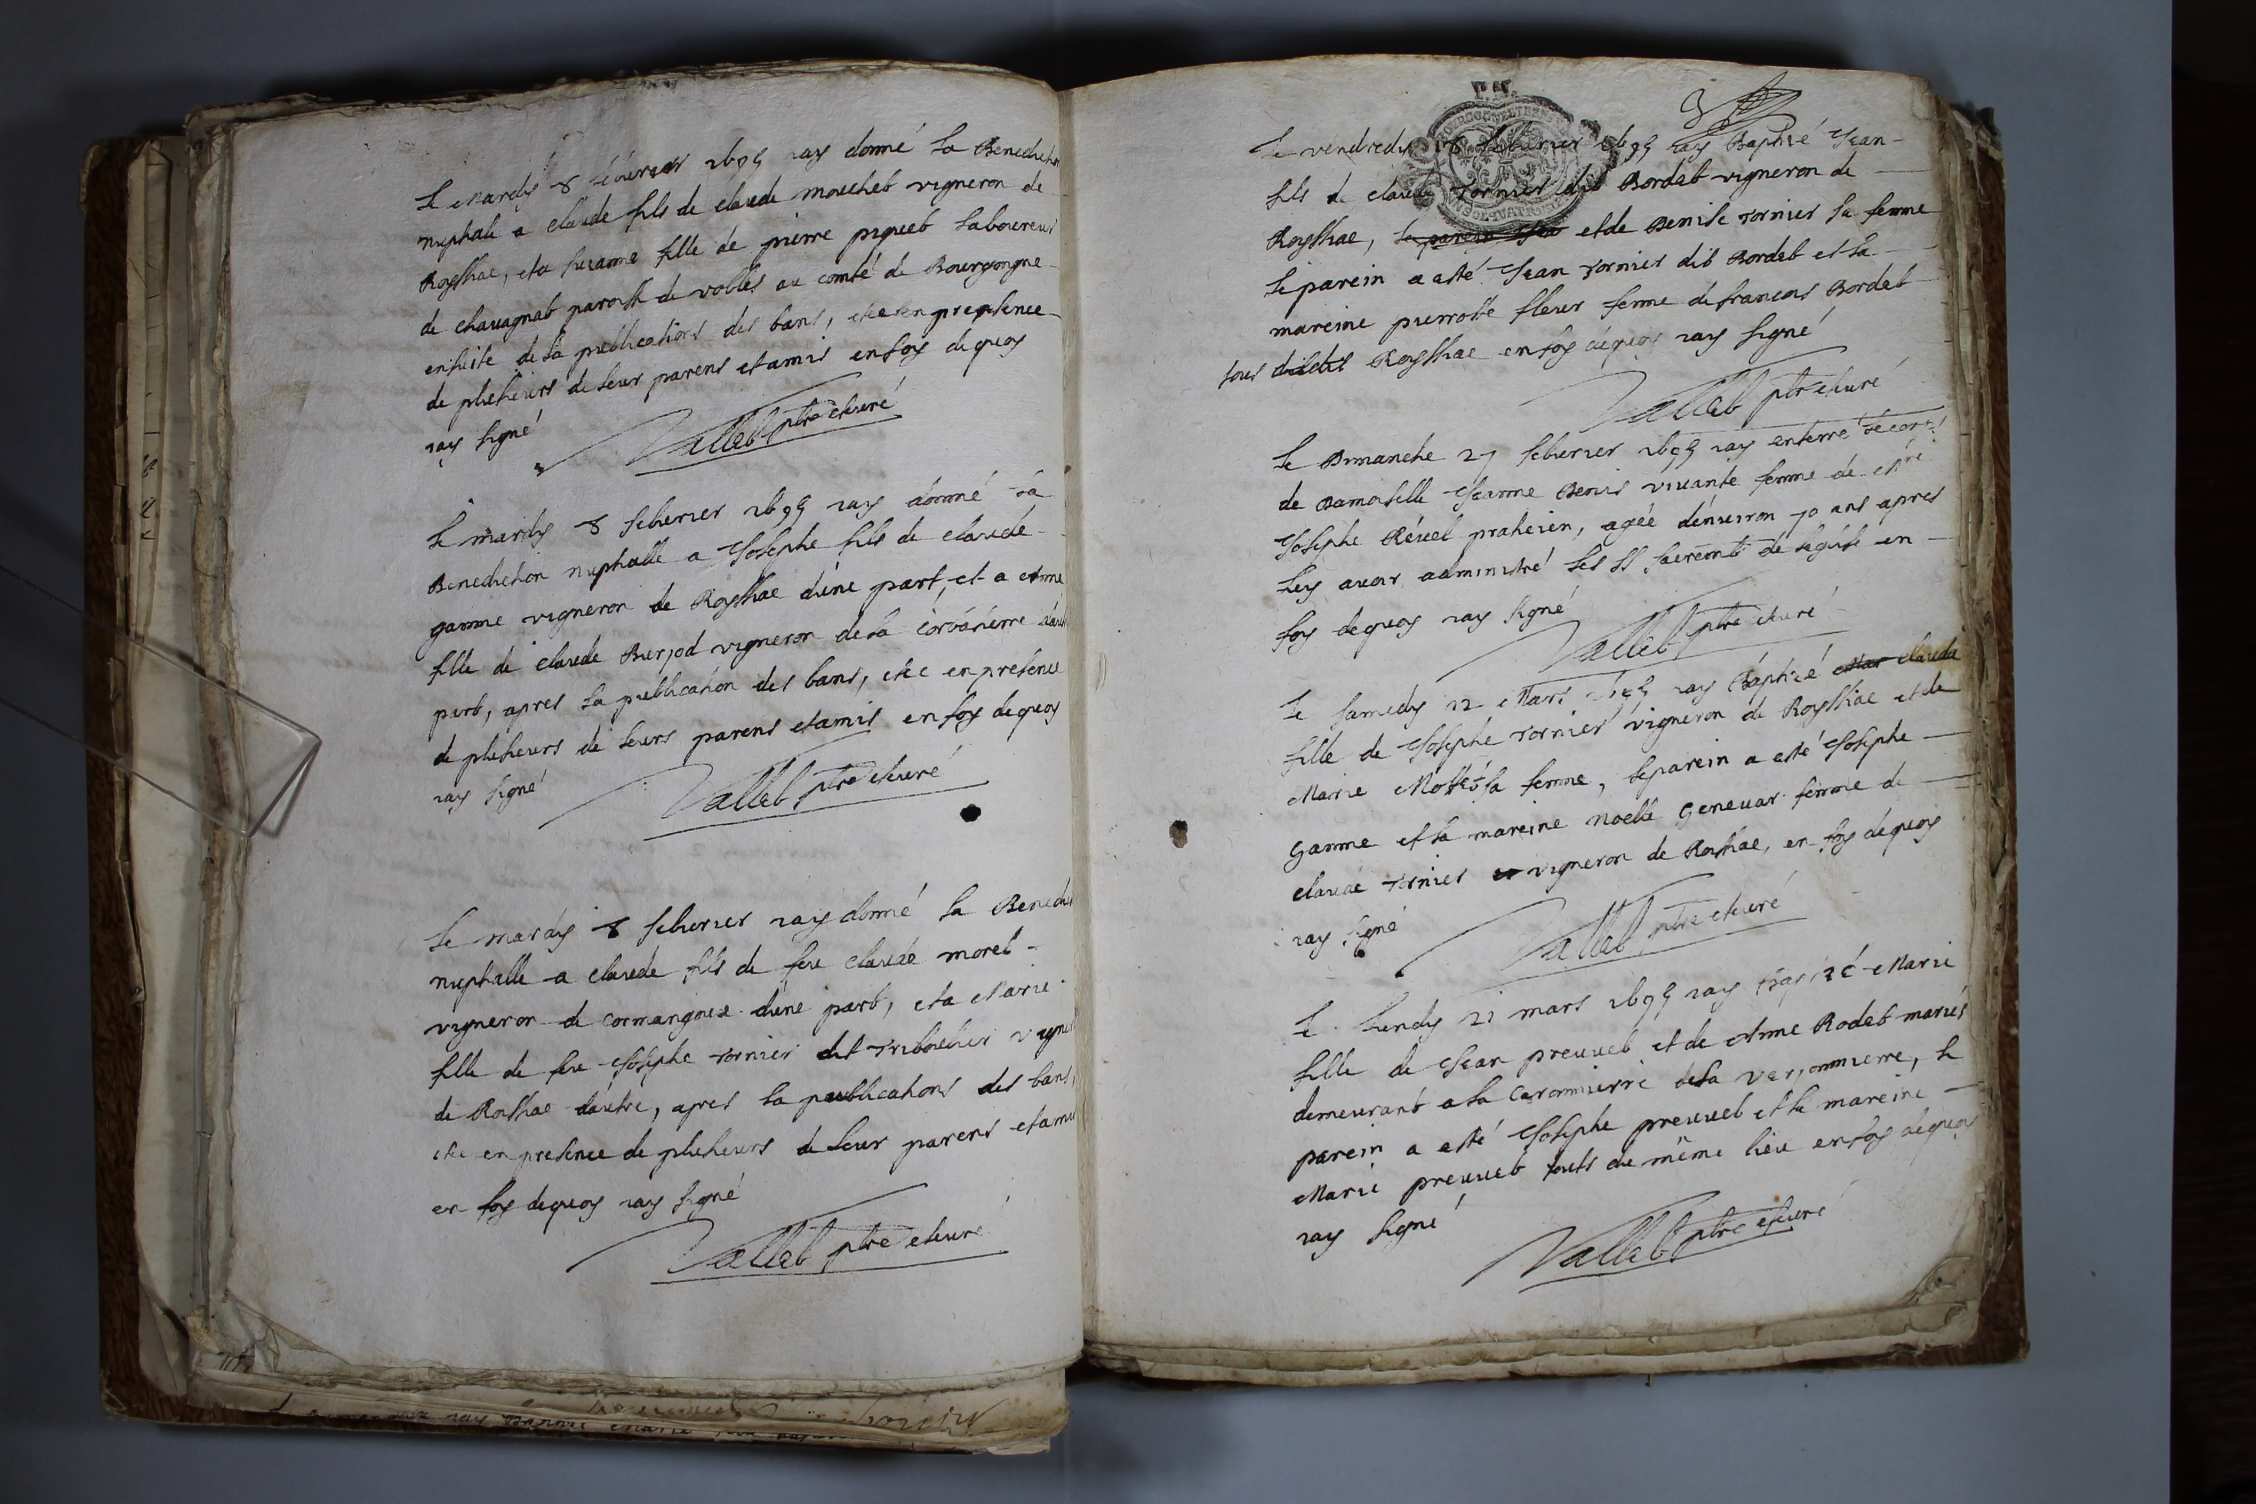 Le Mardy 8 feburier 1695 iay donné la Benediction
nuptiale a claude fils de claude mouchet vigneron de
Roissiac, et a susanne fille de pierre piquet laboureur
de chauagnat paroisse de au comté de Bourgongne
ensuite de la publications des bans, etc en presence
de plusieurs de leur parens et amis en foy de quoy
iay signé
Vallet ptre et curé
Le mardy 8 feburier 1695 iay donné la
Benediction nuptialle a Josephe fils de claude
ganme vigneron de Roissiac d'une part, et a Anne
fille de claude Burjod vigneron de la d'autre
part, apres la publication des bans, etc en presence
de plusieurs de leurs parens et amis en foy de quoy
iay signé
Vallet ptre et curé
Le mardy 8 feburier iay donné la Benedic
nuptialle a claude fils de feu claude morel
vigneron de cormangoux d'une part, et a Marie
fille de feu Josephe Tornier dit vigneron
de Roissiac d'autre, apres la publications des bans,
etc en presence de plusieurs de leur parens et amis
en foy de quoy iay signé
Vallet ptre et curé
3
Le vendredy feburier 1695 iay Baptisé Jean
fils de claude Tornier dit Bordat vigneron de
Royssiac, le parein et de Denise Tornier sa femme
le parein a esté Jean Tornier dit Bordat et la
mareine pierrotte fleur femme de francois Bordat
tous dudit Royssiac en foy de quoy iay signé
Vallet ptre et curé
Le Dimanche 27 feburier 1695 iay enterré le corps
de Damoiselle Jeanne Denis vivante femme de Mre
Josephe Réuel praticien, agée d'enuiron 70 ans apres
luy auoir administré les SS sacremts de l'eglise en
foy de quoy iay signé
Vallet ptre et curé
Le samedy 12 Mars 1695 iay Baptisé Mar claudá
fille de Josephe Tornier vigneron de Royssiac et de
Marie sa femme, le parein a esté Josephe
ganme et la mareine noelle Geneuar femme de
claude Tornier vigneron de Roissiac, en foy de quoy
iay signé
Vallet ptre et curé
Le Lundy 21 mars 1695 iay Baptisé Marie
fille de Jean preuuet et de Anne Rodet mariés
demeurant a la Caronnierre de la Verjonnierre, le
parein a esté Josephe preuuet et la mareine
Marie preuuet touts du même lieu en foy de quoy
iay signé
Vallet ptre et curé